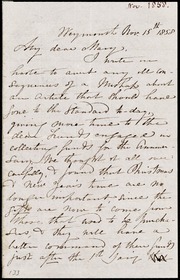 Nov. 1858.
Weymouth Nov 15th 1858
My dear Mary,
I write in
haste to avert any ill con
sequences of a Mishap about
an Article that should have
gone to the Standard to day,
giving some hints to the
dear friends engaged in
collecting funds for the Anniver
sary. We thought of all was
carefully & found that Christmas
& New Years time are no
longer important since the
gifts are now to come from
them that used to be purcha-
sers & they will have a
better command of their funds
just after the 1st Jany